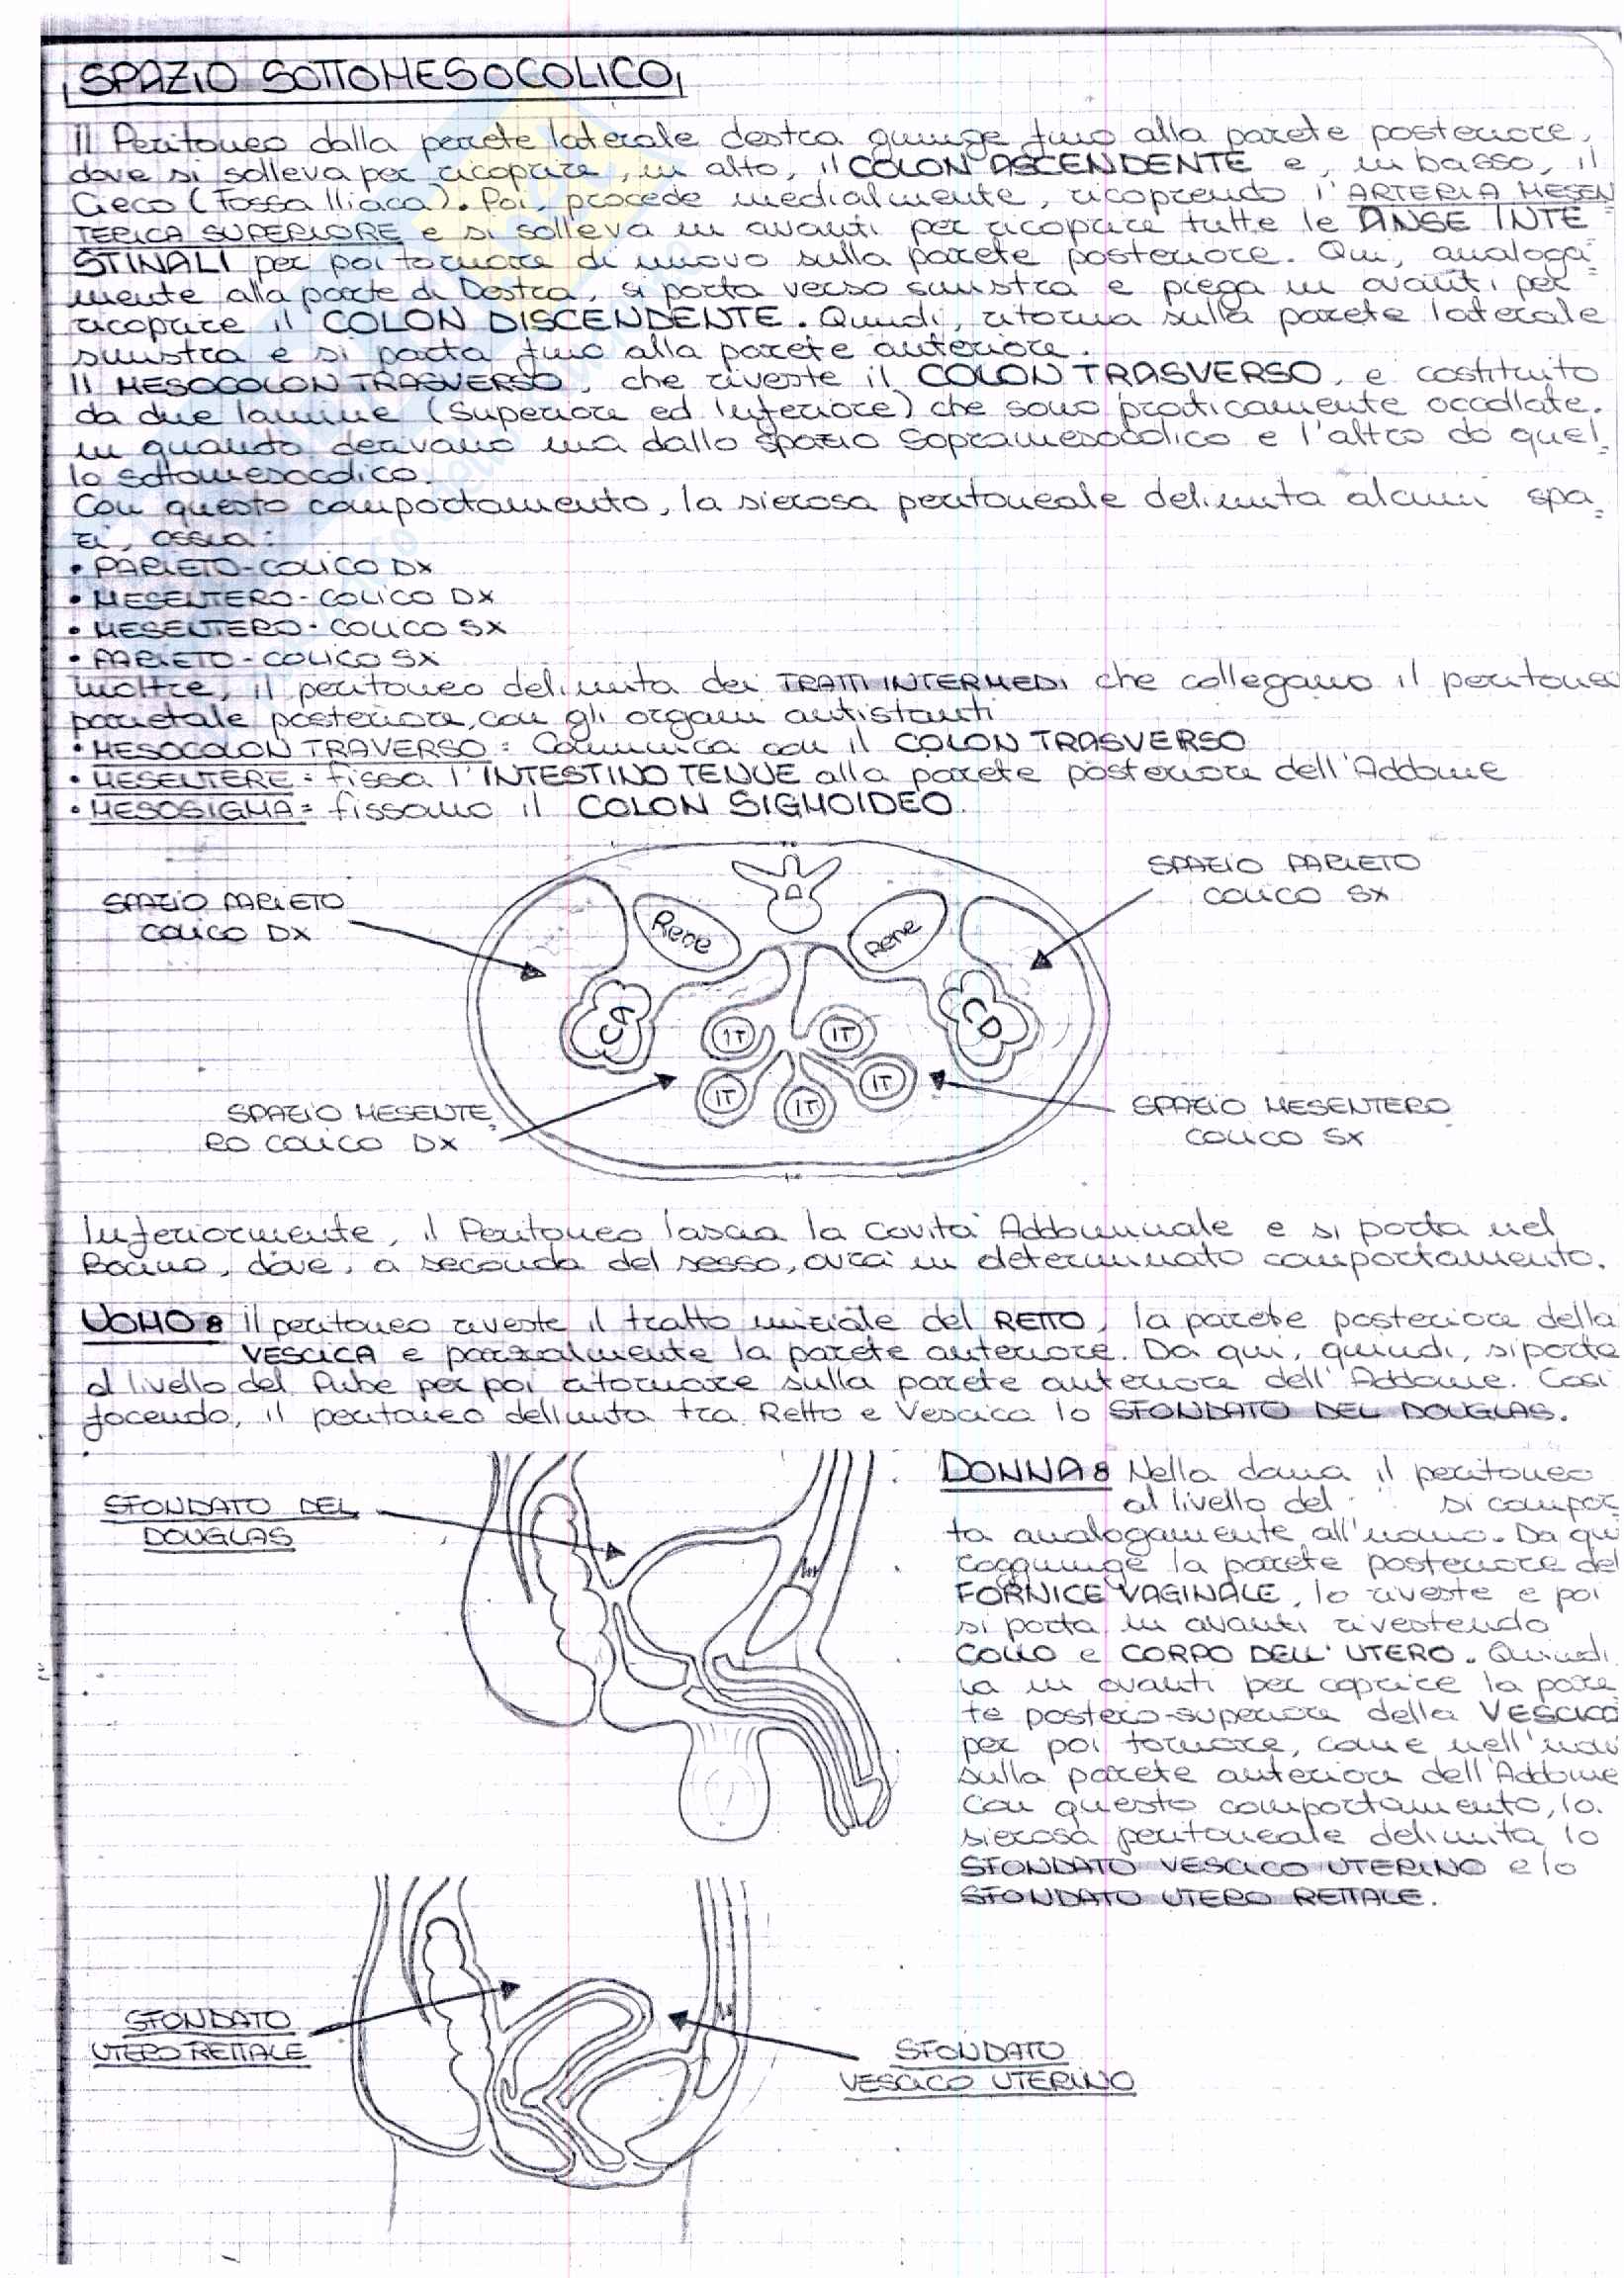 SPAZIO SOTTOMESOCOLICO
Il Peritoneo dalla parete laterale destra giunge fino alla parete posteriore,
dove si solleva per ricoprire, in alto, il COLON ASCENDENTE e, in basso, il
Cieco (Fossa Iliaca). Poi, procede medialmente, ricoprendo l'ARTERIA MESEN
TERICA SUPERIORE e si solleva in avanti per ricoprire tutte le ANSE INTE
STINALI per poi tornare di nuovo sulla parete posteriore. Qui, analoga=
mente alla parte di Destra, si porta verso sinistra e piega in avanti per
ricoprire il COLON DISCENDENTE. Quindi, ritorna sulla parete laterale
sinistra e si porta fino alla parete anteriore.
Il MESOCOLON TRASVERSO, che riveste il COLON TRASVERSO, è costituito
da due lamine (Superiore ed Inferiore) che sono praticamente accollate.
in quando derivano una dallo spazio Sopramesocolico e l'altro da quel=
lo sottomesocolico.
Con questo comportamento, la sierosa peritoneale delimita alcuni spa=
zi, ossia:
• PARIETO-COLICO DX
• MESENTERO-COLICO DX
• MESENTERO-COLICO SX
• PARIETO-COLICO SX
Inoltre, il peritoneo delimita dei TRATTI INTERMEDI che collegano il peritoneo
parietale posteriore, con gli organi antistanti
• MESOCOLON TRAVERSO: Comunica con il COLON TRASVERSO
• MESENTERE: fissa l'INTESTINO TENUE alla parete posteriore dell'Addome
• MESOSIGMA: fissano il COLON SIGMOIDEO.
SPAZIO PARIETO
COLICO SX
SPAZIO PARIETO
COLICO DX
Rene
Rene
CA
CD
IT
IT
IT
IT
IT
SPAZIO MESENTE
RO COLICO DX
SPAZIO MESENTERO
COLICO SX
Inferiormente, il Peritoneo lascia la cavità Addominale e si porta nel
Bacino, dove, a seconda del sesso, avrà un determinato comportamento.
UOMO: il peritoneo riveste il tratto iniziale del RETTO, la parete posteriore della
VESCICA e parzialmente la parete anteriore. Da qui, quindi, si porta
al livello del Pube per poi ritornare sulla parete anteriore dell'Addome. Così
facendo, il peritoneo delimita tra Retto e Vescica lo SFONDATO DEL DOUGLAS.
SFONDATO DEL
DOUGLAS
DONNA: Nella donna il peritoneo
al livello del si compor
ta analogamente all'uomo. Da qui
raggiunge la parete posteriore del
FORNICE VAGINALE, lo riveste e poi
si porta in avanti rivestendo
COLLO e CORPO DELL'UTERO. Quindi
va in avanti per coprire la pare
te postero-superiore della VESCICA
per poi tornare, come nell'uomo
sulla parete anteriore dell'Addome
Con questo comportamento, la
sierosa peritoneale delimita lo
SFONDATO VESCICO UTERINO e lo
SFONDATO UTERO RETTALE.
SFONDATO
UTERO RETTALE
SFONDATO
VESCICO UTERINO